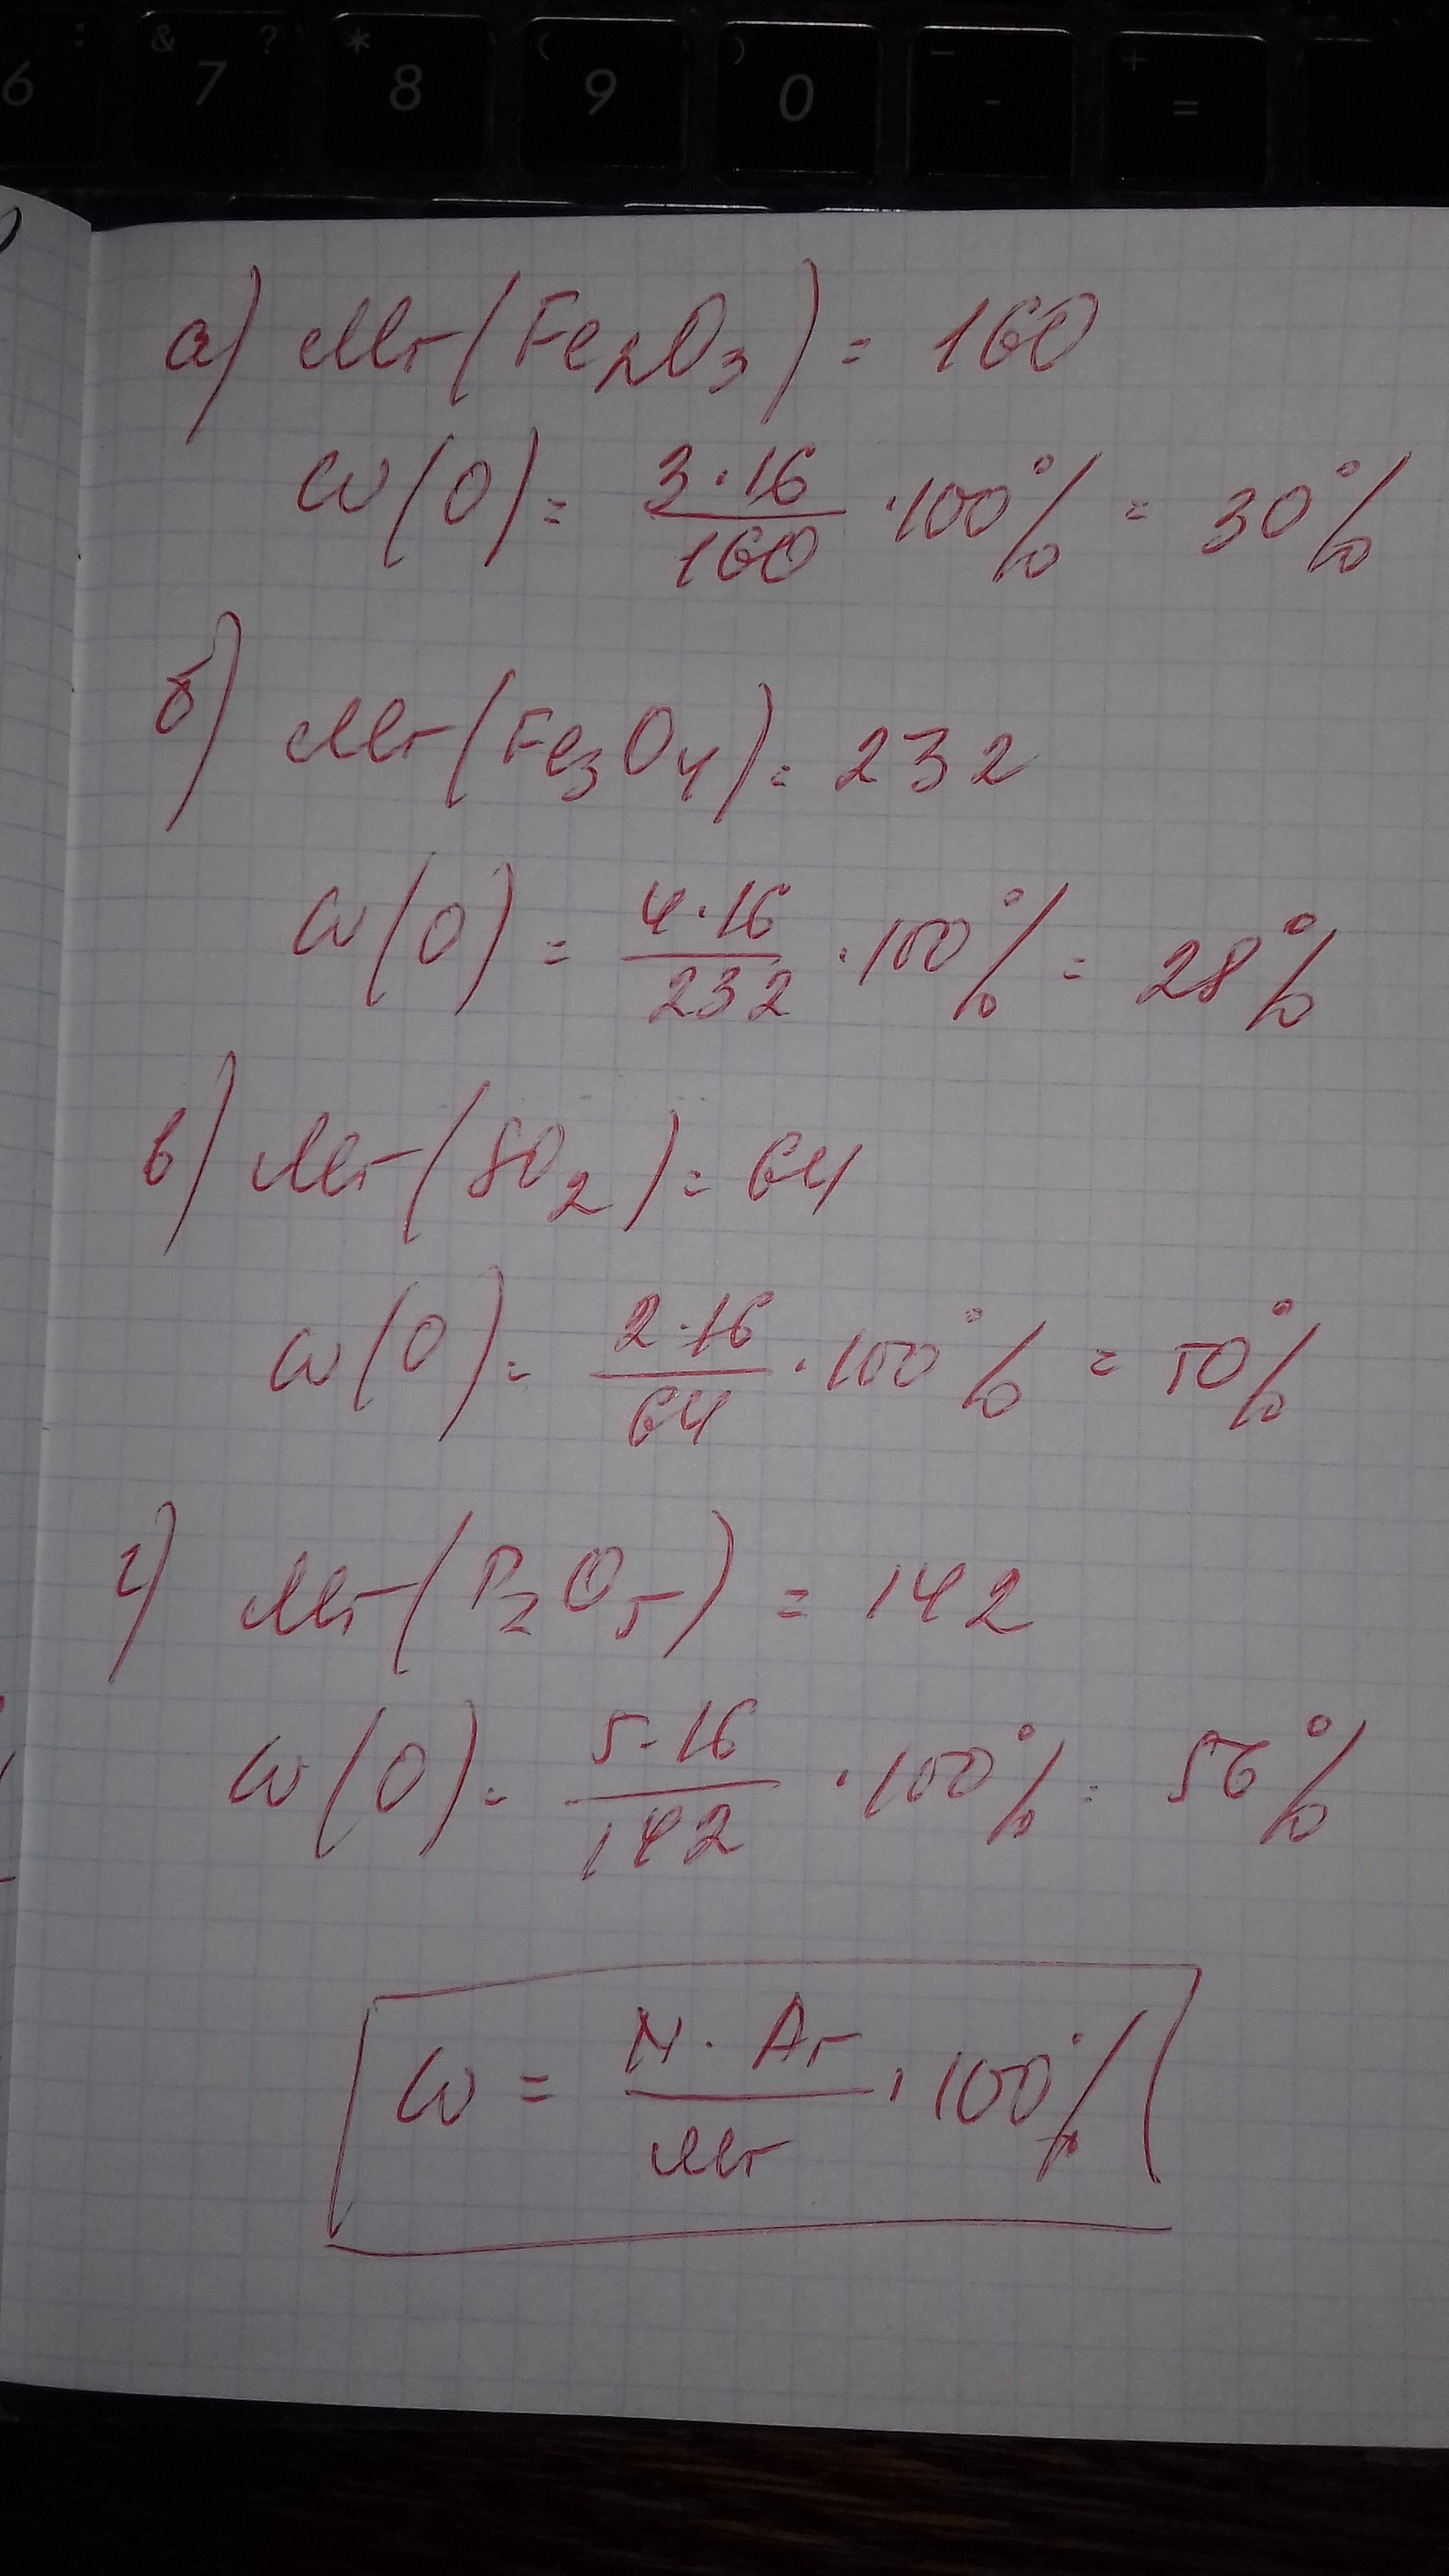 : & ? * ( ) _ +
6 7 8 9 0 - =
а) Mr(Fe₂O₃) = 160
ω(O) = 3·16/160 ·100% = 30%
б) Mr(Fe₃O₄) = 232
ω(O) = 4·16/232 ·100% = 28%
в) Mr(SO₂) = 64
ω(O) = 2·16/64 ·100% = 50%
г) Mr(P₂O₅) = 142
ω(O) = 5·16/142 ·100% = 56%
ω = N·Ar/Mr ·100%